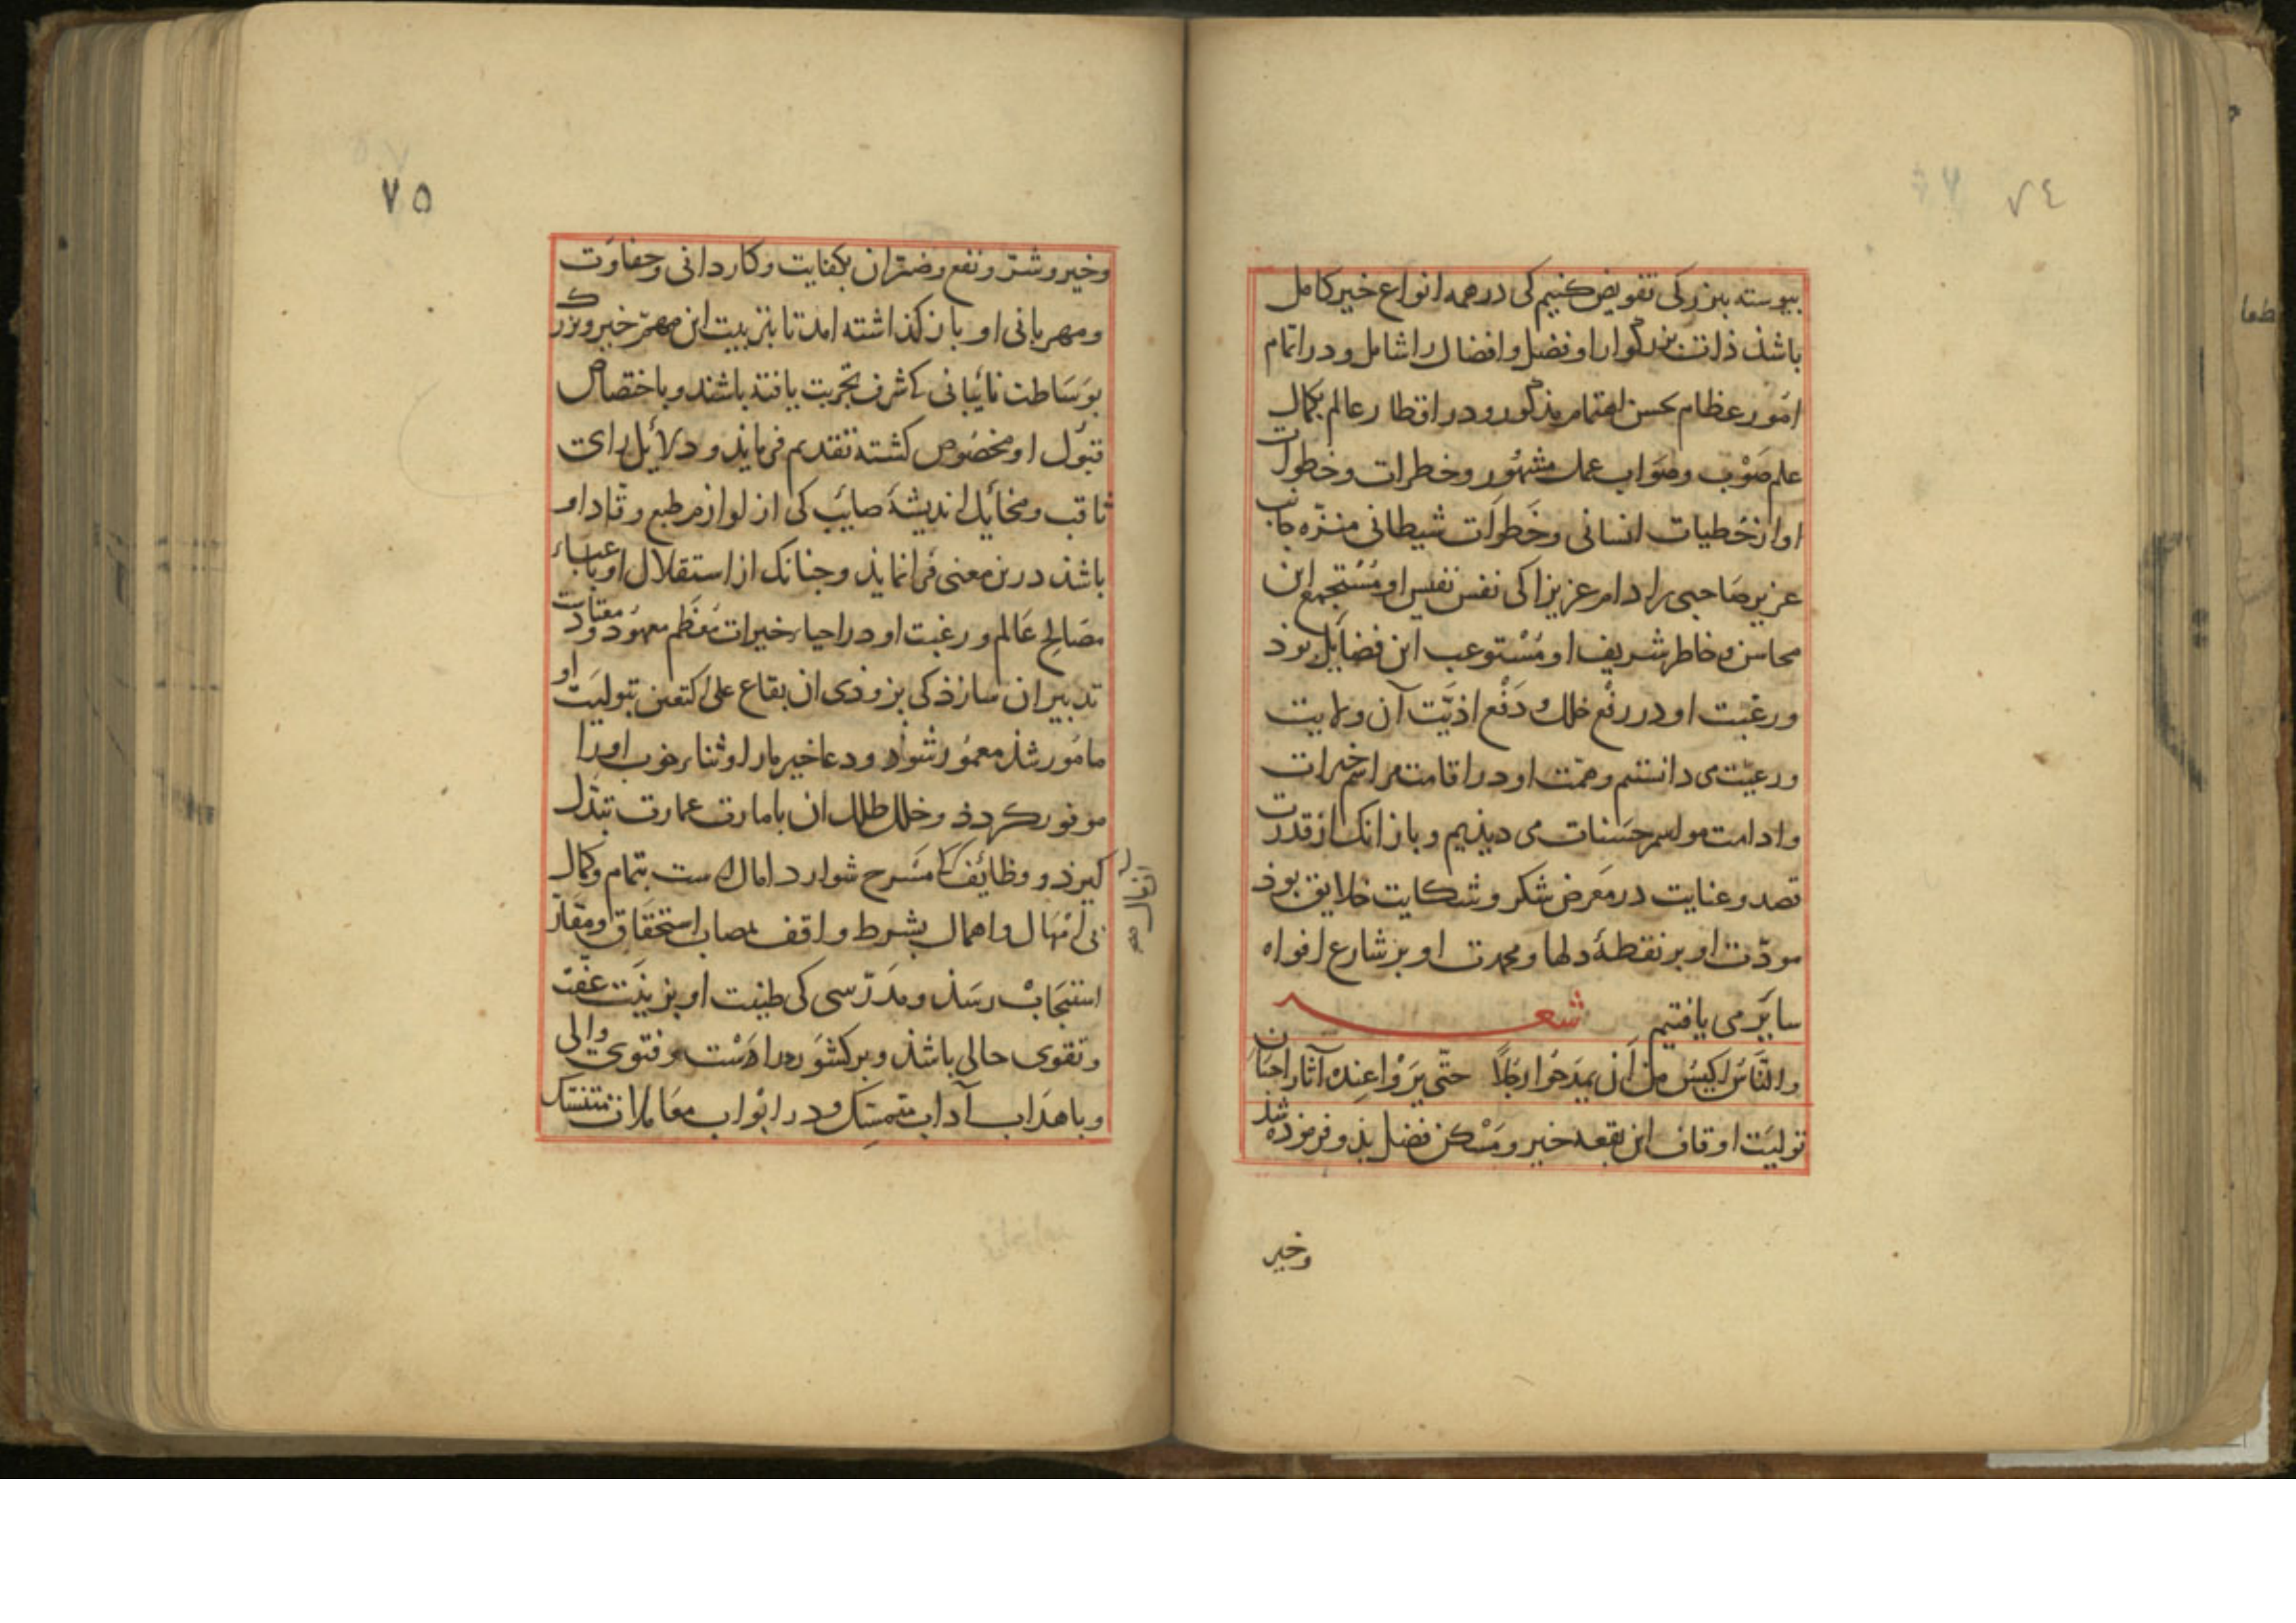 ٧٤
بیوسته ببزرکی تفویض کنیم کی در همه انواع خیر کامل
باشذ ذات بزرگوار او فضل و افضال را شامل و در اتمام
امور عظام بحسن اهتمام مذکور و در اقطار عالم بکمال
علم صَوْب و صَواب عمل مشهُور و خطرات و خطوات
او از خطیات انسانی و خَطوات شیطانی منزّه جانب
عزیز صَاحبی را دام عزیزا کی نفس نفیس او مُسْتجمع این
محاسن و خاطر شریف او مُسْتوعب این فضایل بوذ
و رغبت او در رفْع خلل و دَفْع اذیّت آن ولایت
و رعیّت می دانستیم و همّت او در اقامت مراسم خیرات
و ادامت مواسم حسَنات می دیذیم و باز انک از قدرت
قصد و عنایت در مَعرض شکر و شکایت خلایق بوذ
مودّت او بر نقطهٔ دلها و محمدت او بر شارع افواه
سایَر می یافتیم شعر
والنَّاسُ اکیسُ من اَن یمدَحُوا رجُلاً حتّی یَرَوْا عِندهُ آثار احسَان
تولیَت اوقاف این بقعه خیر و مَسْکن فضل بذو فرموذه شذ
وخیر
٧٥
و خیر و شرّ و نفع و ضرّ ان بکفایت و کاردانی و حفاوَت
و مهربانی او باز کذاشته امد تا بتربیت این مهمّ خیر و بزرک
بوَسَاطت نایبانی کی شرف تجربت یافتذ باشند و باختصاص
قبوُل او مخصُوص کشته تقدیم فرمایذ و دلایل رای
ثاقب و مخایل اندیشهٔ صایب کی از لوازم طبع وقّاد او
باشذ درین معنی فرا نمایذ و جنانک از استقلال او باعباء
مصَالح عَالم و رغبت او در احیاء خیرات مُعَظم معهُود و معتادست
تدبیر ان سازذ کی بزوذی ان بقاع علی اکتعین بتولیَت او
مامُور شذ معمُور شوَذ و دعا خیر مار او ثناء خوب او را
موفور کردذ و خلل طلل ان بامارت عمارت تبدّل
کیرذ و وظایف کی مسَرح شوارد امال است بتمام و کمال
بی اِمْهَال و اهمال بشرط واقف بمصاب استحقاق و مقارّ
استیجَابْ رسَذ و مدَرّسی کی طینت او بزینَت عفّت
و تقوی حالی باشذ و بر کشوَر دراسَت و فتوی والی
و باهدَاب آداب متمسِّک و در ابوَاب معَاملات متنسّک